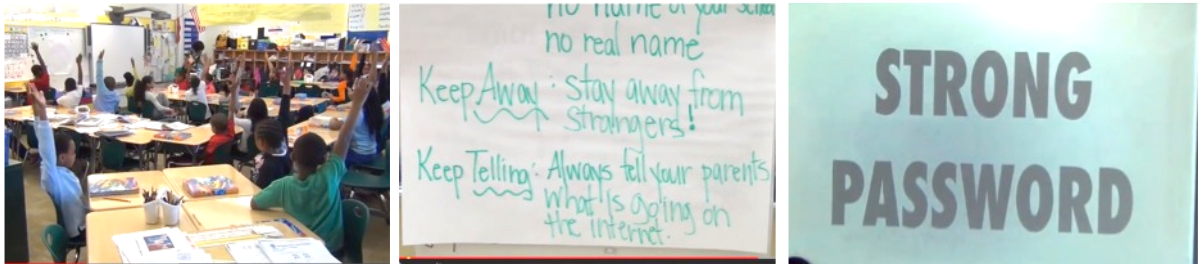 no name of your school
no real name
Keep Away: stay away from
strangers!
Keep Telling: Always tell your parents
what is going on
the internet.
STRONG
PASSWORD